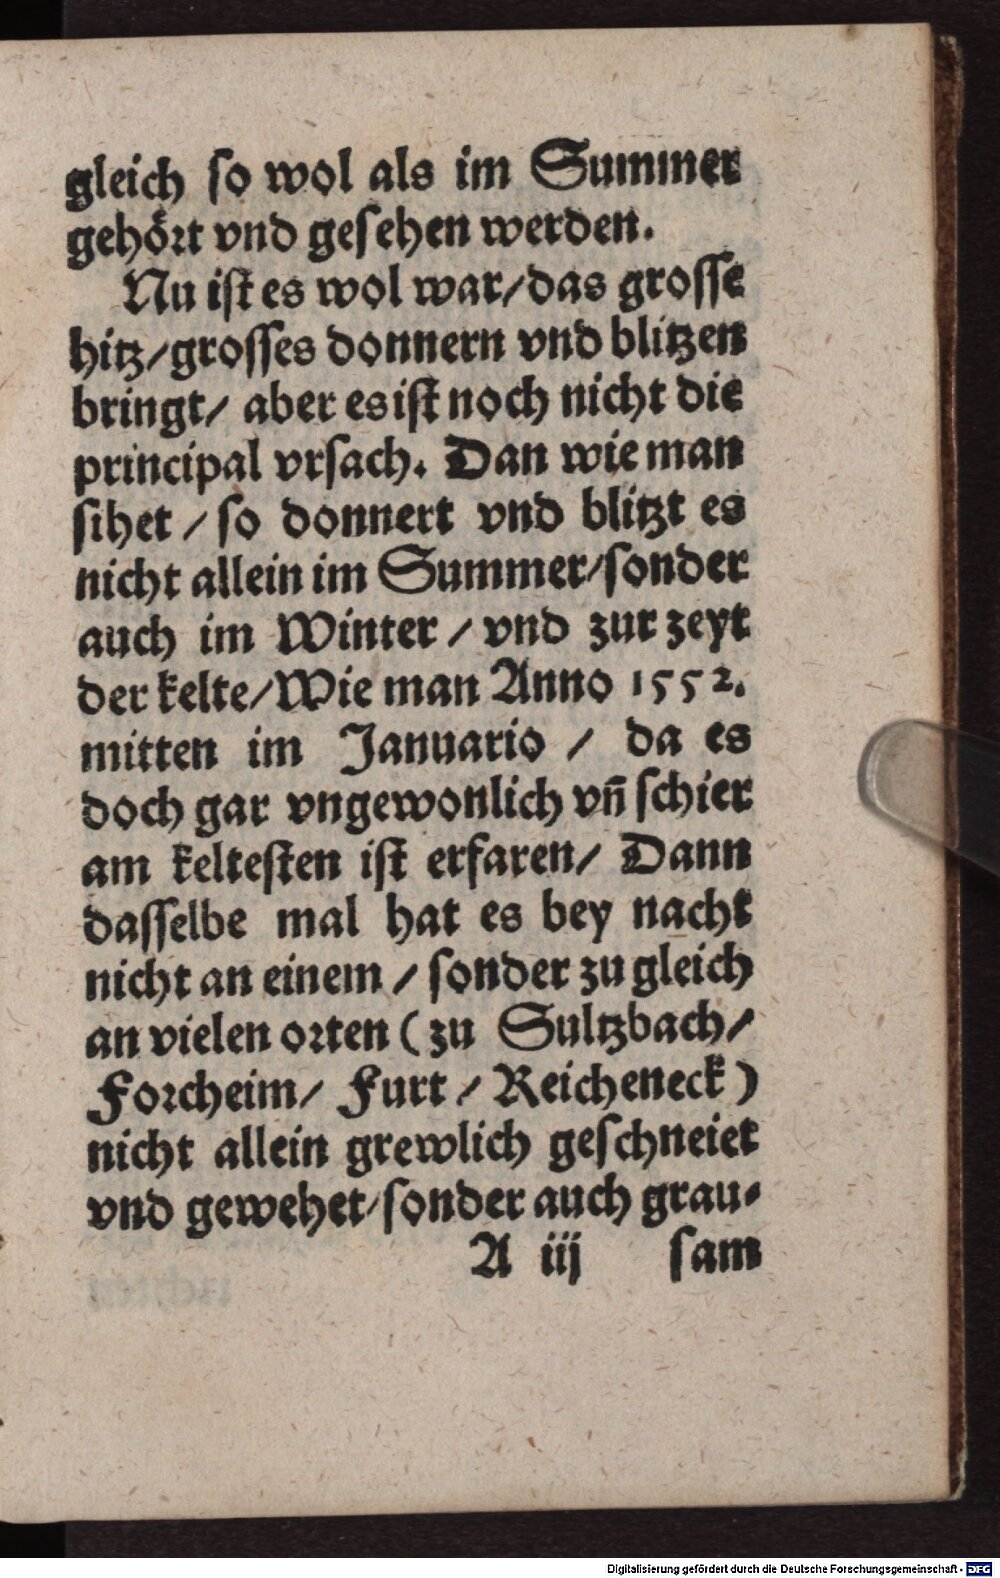 gleich so wol als im Summer
gehoͤrt vnd gesehen werden.
Nu ist es wol war/das grosse
hitz/grosses donnern vnd blitzen
bringt/ aber es ist noch nicht die
principal vrsach. Dan wie man
sihet / so donnert vnd blitzt es
nicht allein im Summer/sonder
auch im Winter / vnd zur zeyt
der kelte/Wie man Anno 1552.
mitten im Januario / da es
doch gar vngewonlich vn̄ schier
am keltesten ist erfaren/ Dann
dasselbe mal hat es bey nacht
nicht an einem / sonder zu gleich
an vielen orten (zu Sultzbach/
Forcheim/ Furt / Reicheneck)
nicht allein grewlich geschneiet
vnd gewehet/sonder auch grau-
A iij sam
Digitalisierung gefördert durch die Deutsche Forschungsgemeinschaft - DFG